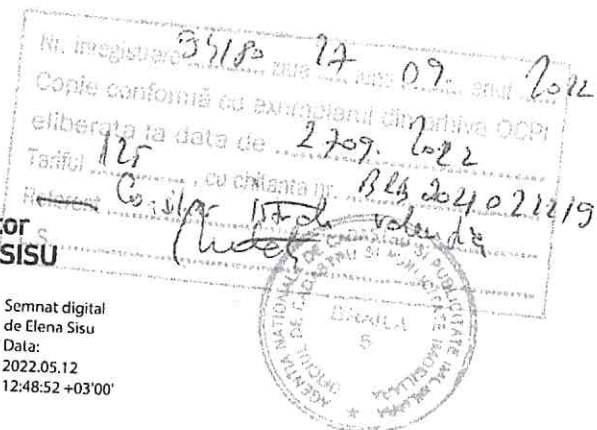 Nr. inregistrare 34180 ziua 27 luna 09. anul 2022
Copie conformă cu exemplarul din arhiva OCPI
eliberata la data de 27 09. 2022
Tariful 125, cu chitanta nr.
Referent
S.
tor
SISU
Semnat digital
de Elena Sisu
Data:
2022.05.12
12:48:52 +03'00'
AGENTIA NATIONALA DE CADASTRU SI PUBLICITATE IMOBILIARA
OFICIUL DE CADASTRU SI PUBLICITATE IMOBILIARA
BRAILA